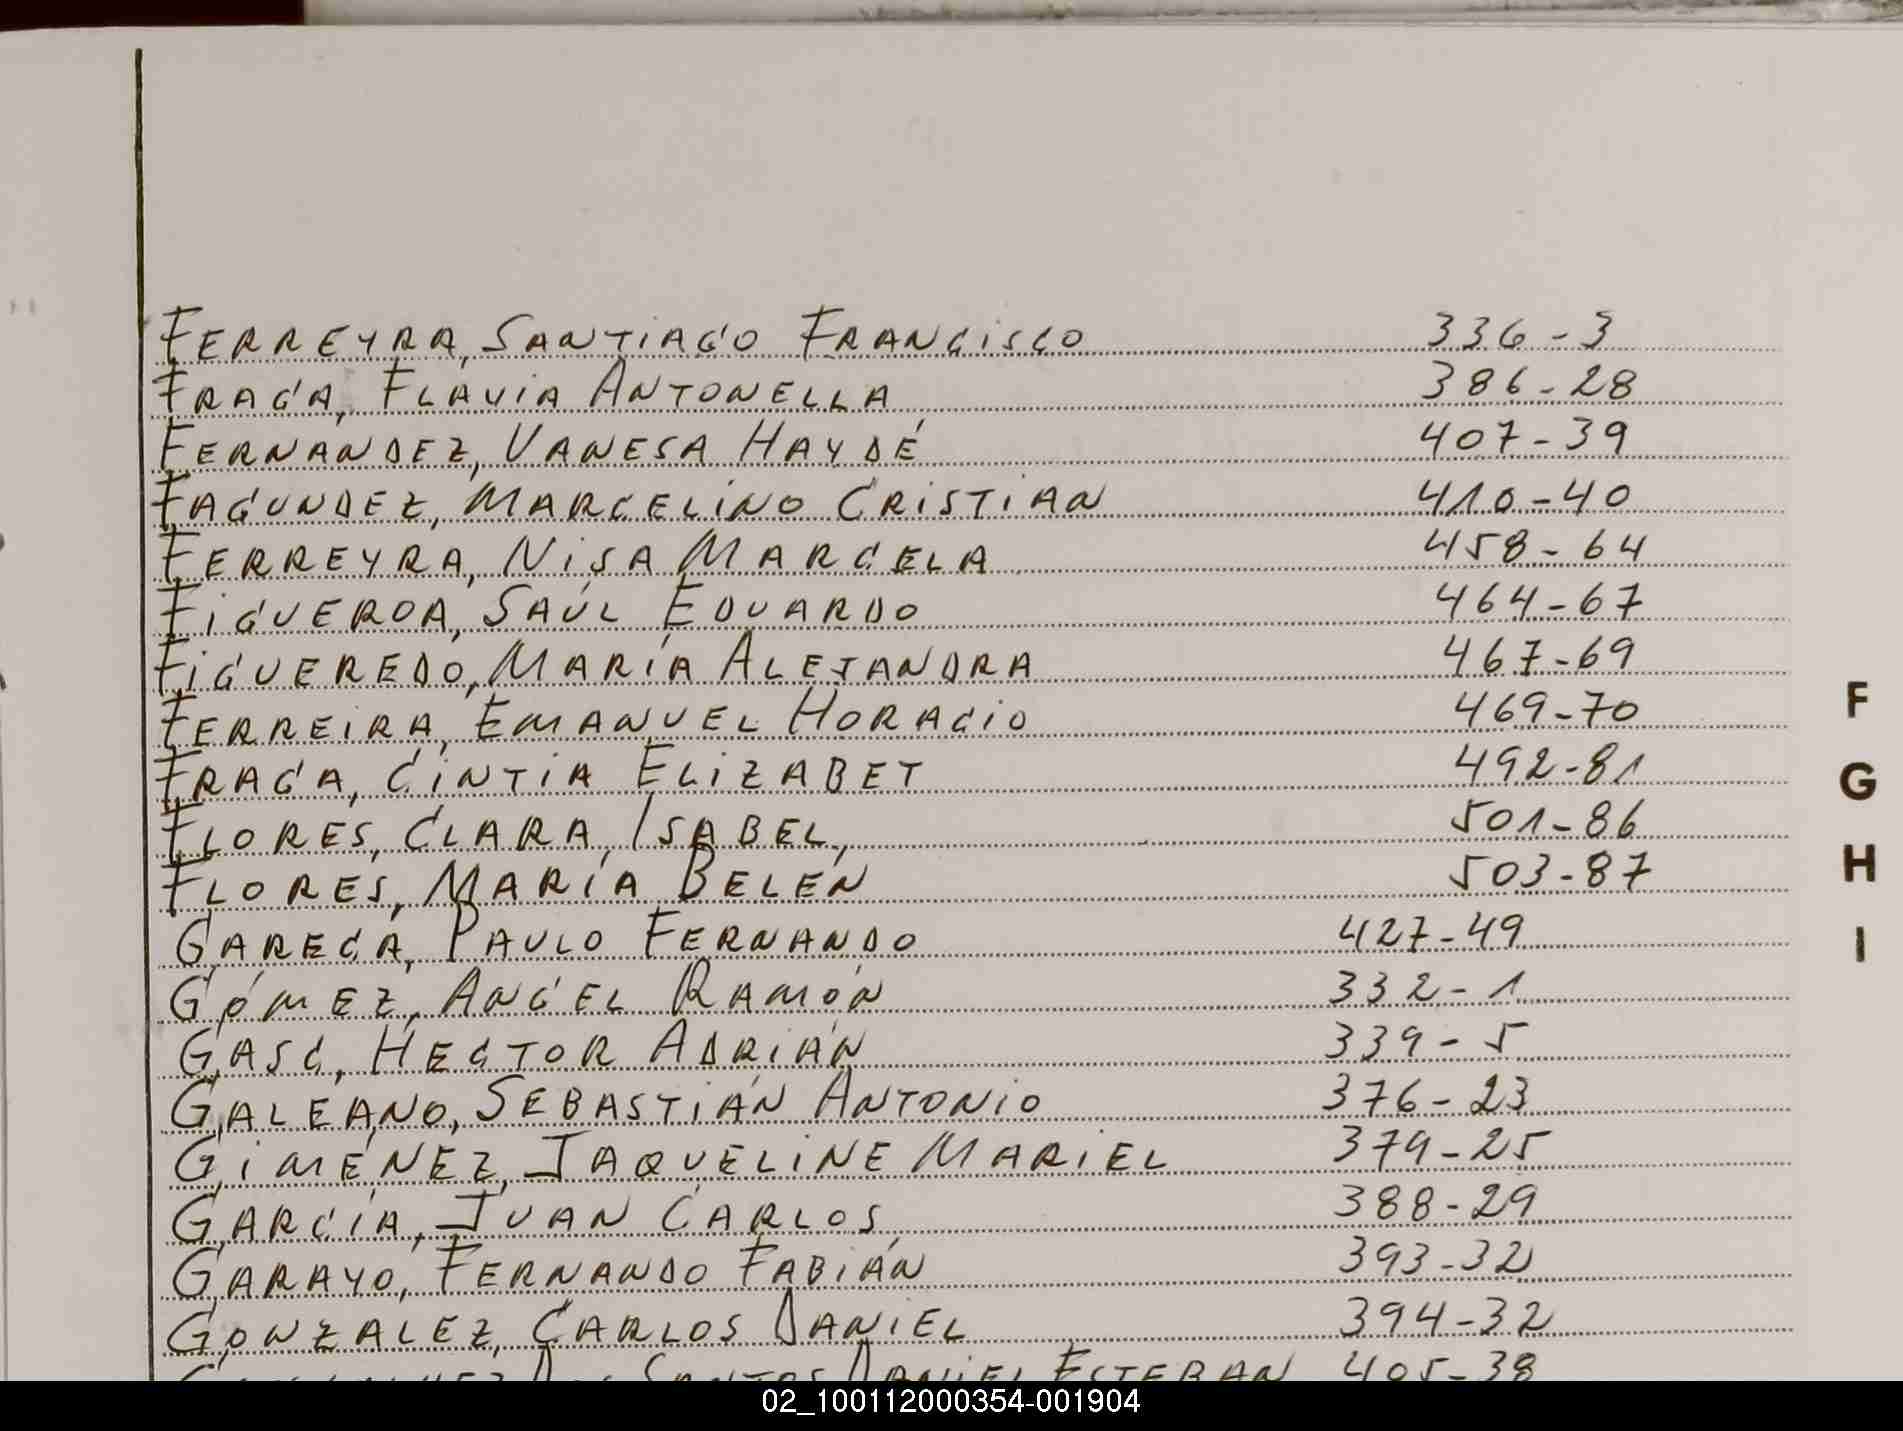 FERREYRA, SANTIAGO FRANCISCO 336-3
FRAGA, FLAVIA ANTONELLA 386-28
FERNANDEZ, VANESA HAYDÉ 407-39
FAGUNDEZ, MARCELINO CRISTIAN 410-40
FERREYRA, NISA MARCELA 458-64
FIGUEROA, SAÚL EDUARDO 464-67
FIGUEREDO, MARÍA ALEJANDRA 467-69
FERREIRA, EMANUEL HORACIO 469-70
FRAGA, CINTIA ELIZABET 492-81
FLORES, CLARA, ISABEL, 501-86
FLORES, MARÍA BELÉN 503-87
GARECA, PAULO FERNANDO 427-49
GÓMEZ, ANGEL RAMÓN 332-1
GASC, HECTOR ADRIÁN 339-5
GALEANO, SEBASTIÁN ANTONIO 376-23
GIMENEZ, JAQUELINE MARIEL 379-25
GARCÍA, JUAN CARLOS 388-29
GARAYO, FERNANDO FABIÁN 393-32
GONZALEZ, CARLOS DANIEL 394-32
SANTOS DANIEL ESTEBAN 405-38
F
G
H
I
02_100112000354-001904